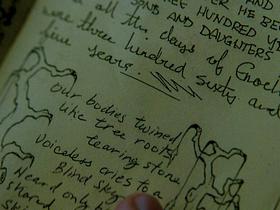 HUNDRED
SONS AND DAUGHTERS
all the days of Enoch
were three hundred sixty and
five years.
Our bodies twined
like tree roots
tearing stone
Voiceless cries to a
Blind sky
Heard only
shared